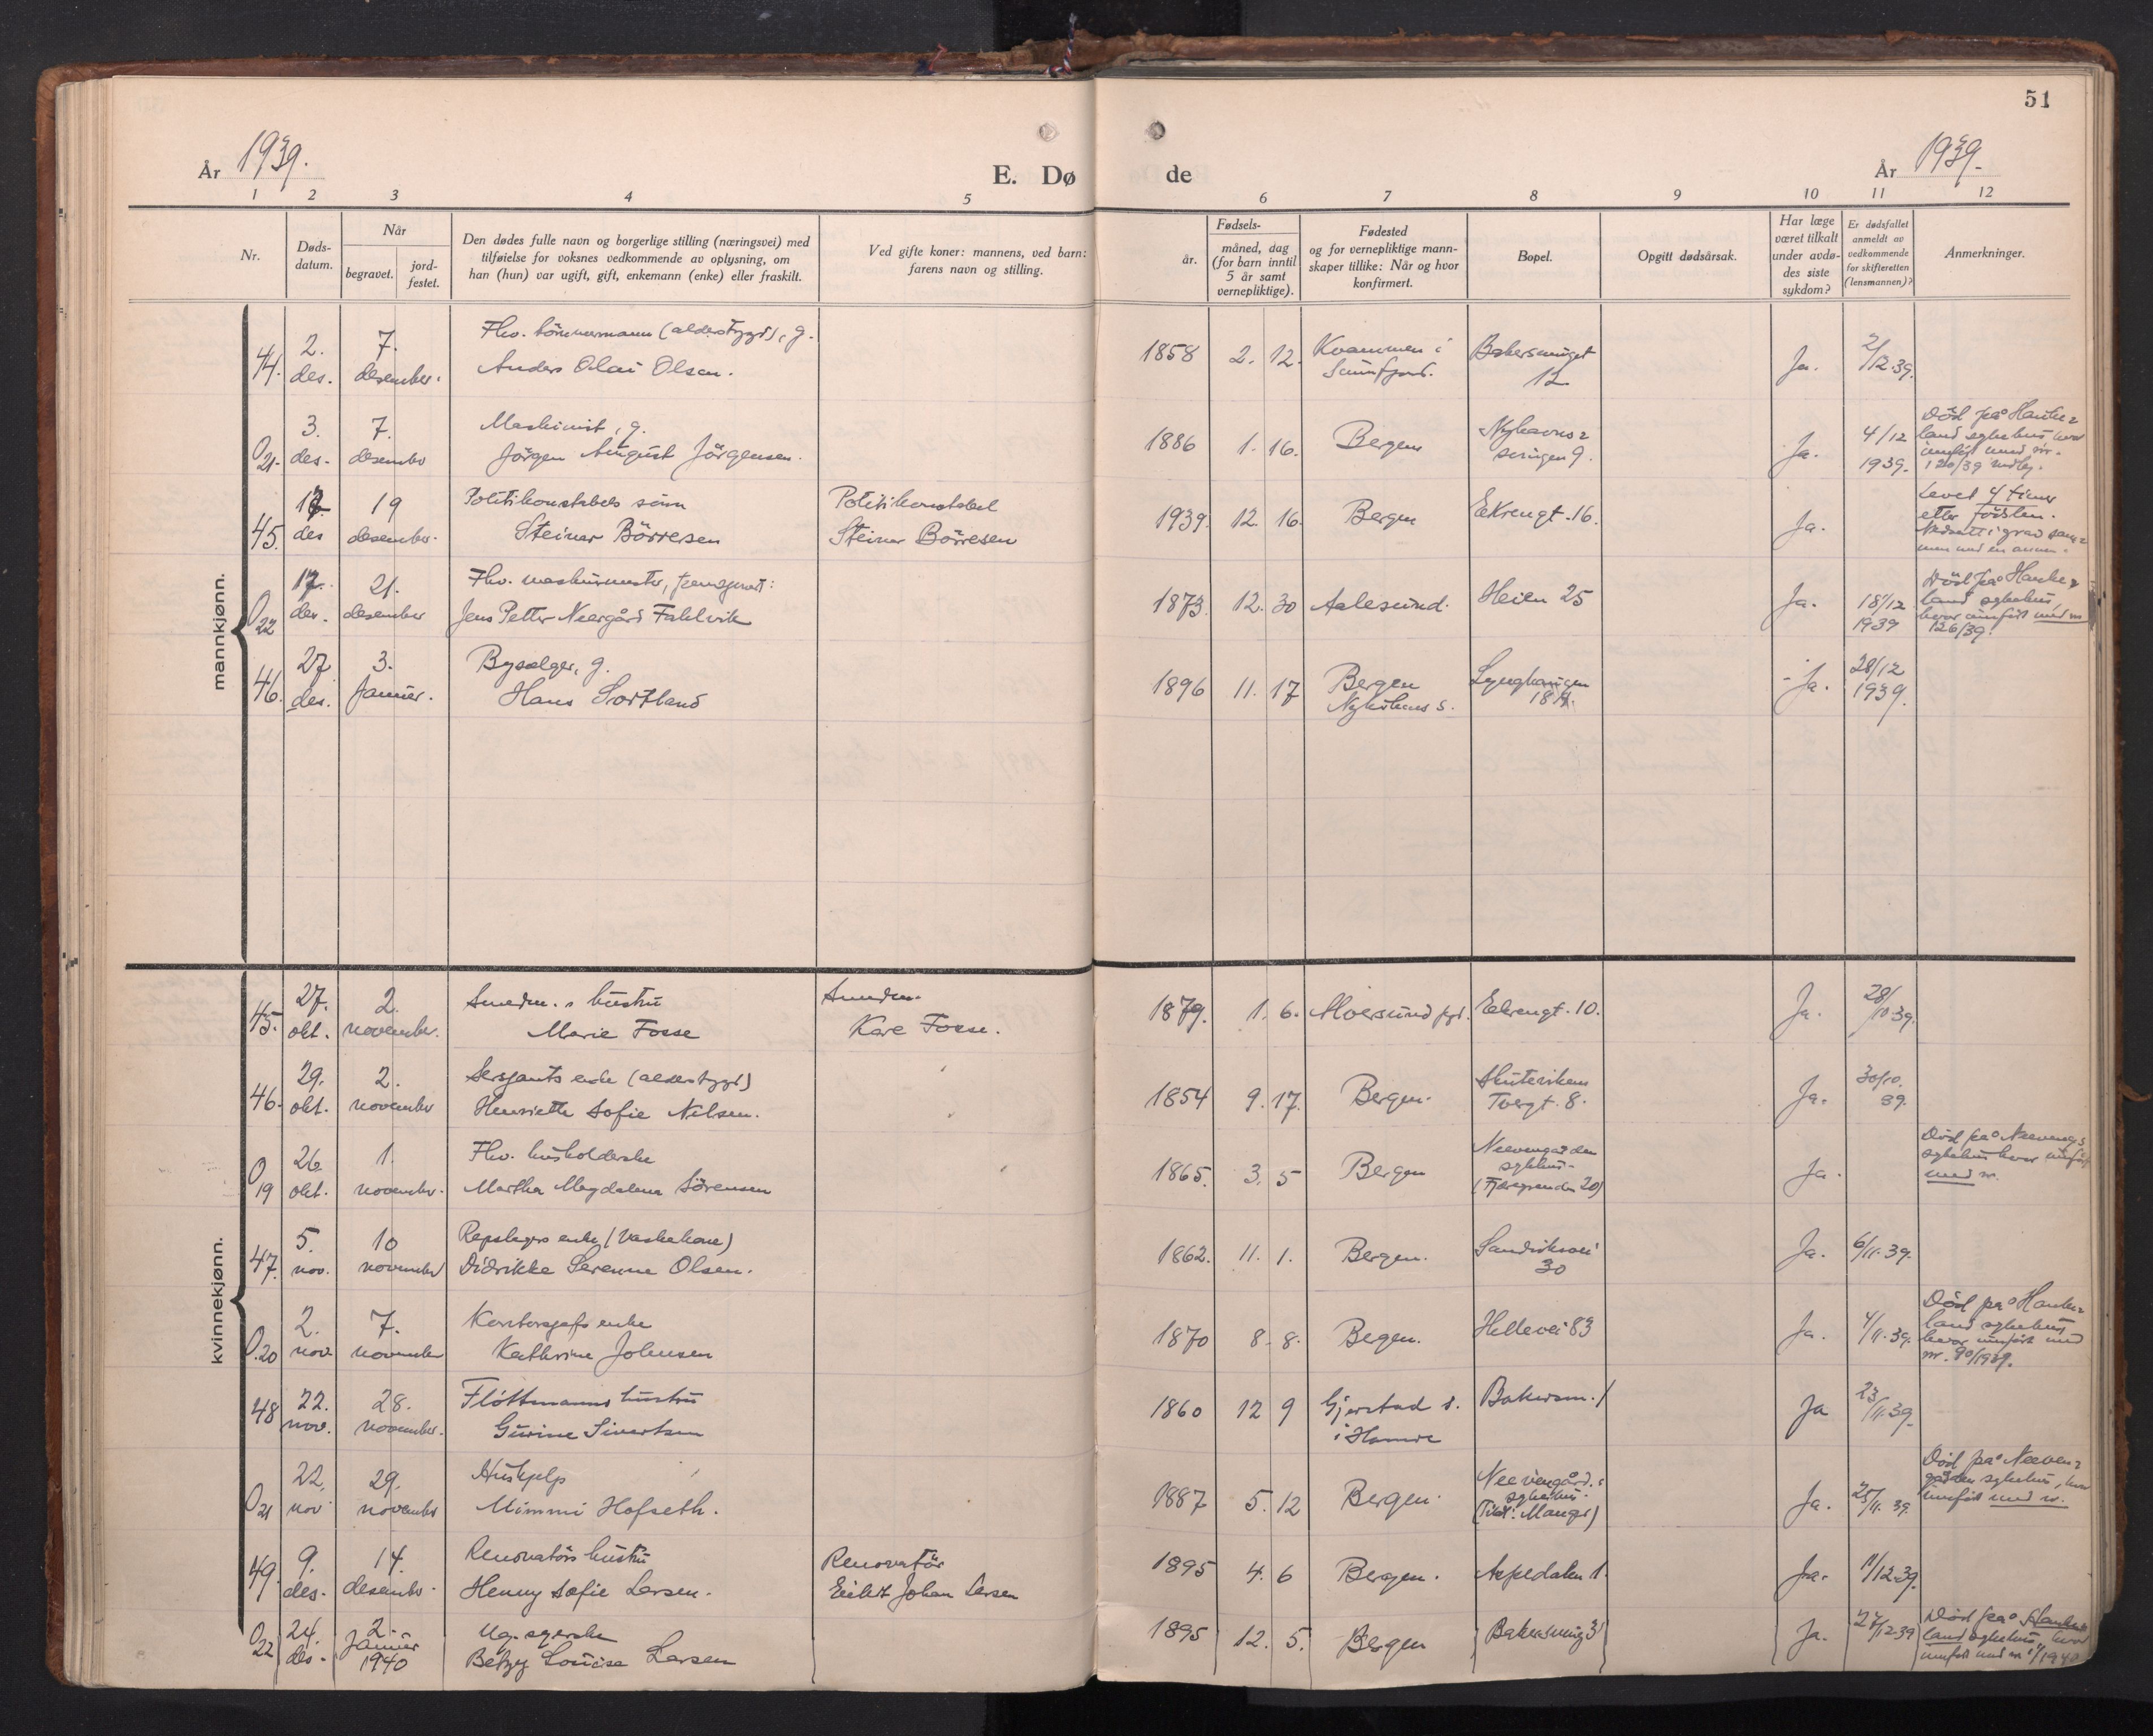 51
År 1939.
E. Dø
de
År 1939.
1 2 3 4 5 6 7 8 9 10 11 12
Nr.
Døds-
datum.
Når
begravet.
jord-
festet.
Den dødes fulle navn og borgerlige stilling (næringsvei) med
tilføielse for voksnes vedkommende av oplysning, om
han (hun) var ugift, gift, enkemann (enke) eller fraskilt.
Ved gifte koner: mannens, ved barn:
farens navn og stilling.
Fødsels-
år.
måned, dag
(for barn inntil
5 år samt
vernepliktige).
Fødested
og for vernepliktige mann-
skaper tillike: Når og hvor
konfirmert.
Bopel.
Opgitt dødsårsak.
Har læge
været tilkalt
under avdø-
des siste
sykdom?
Er dødsfallet
anmeldt av
vedkommende
for skifteretten
(lensmannen)?
Anmerkninger.
mannkjønn.
44. 2. des. 7. desember.
Fhv. tömmermann (alderstrygd), g.
Anders Olai Olsen.
1858 2. 12. Kvammen i
Sunnfjord.
Bakersmuget
12
Ja. 2/12.39.
O 21. 3. des. 7. desember
Maskinist, g.
Jörgen August Jörgensen.
1886 1. 16. Bergen
9.
Ja. 4/12 1939.
Död på Hauke=
land sykehus, hvor
innført med nr.
120/39
45. des 19 desember.
Politikonstabels sönn
Steinar Börresen
Politikonstabel
Steinar Börresen
1939. 12. 16. Bergen Eekrengt. 16.
Ja.
Levet 4 timer
etter födslen.
Nedsatt i grav sam=
men med en annen.
O 22 17. des. 21. desember
Fhv. maskinmester,
Jens Petter Neergård Fahlvik
1873. 12. 30 Aalesund. Heien 25
Ja. 18/12 1939
Död på Hauke=
land sykehus,
hvor innført med nr
126/39.
46. 27 des. 3. Januar.
Byselger, g.
Hans Sortland
1896 11. 17 Bergen
Nykirkens s.
Lynghaugen
Ja. 28/12 1939.
kvinnekjønn.
45. 27. okt. 2. november.
hustru
Marie Fosse
Kåre Fosse.
1879. 1. 6. Eekrengt. 10.
Ja. 28/10.39.
46. 29. okt. 2. november
Sersjants enke (alderstrygd)
Henriette Sofie Nilsen.
1854 9. 17. Bergen.
Skuteviken
Tvergt. 8.
Ja. 30/10. 39.
O 19 26 okt. 1. november.
Fhv. husholderske
Martha Magdalena Sörensen
1865. 3. 5 Bergen
Neevengården
sykehus.
(Fjæregrenden 20)
Ja.
Död på Neeveng.s
sykehus hvor innført
med nr.
47. 5. nov. 10 november
Repslagers enke (Vaskekone)
Didrikke Serenne Olsen.
1862. 11. 1. Bergen. Sandviksvei
30
Ja. 6/11.39.
O.20 2. nov. 7. november
Kontorsjefs enke
Kathrine Johnsen
1870 8. 8. Begen. Hellevei 83
Ja. 4/11.39.
Död på Hauke=
land sykehus
hvor innført med
nr. 90/1939.
48 22. nov. 28. november.
Fløttmanns hustru
Gurine Sivertsen
1860 12 9 Gjerstad s.
i Hamre
Bakersm. 1
Ja 23/11.39.
O 21 22. nov 29. november
Hushjelp
Mimmi Hofseth.
1887 5. 12 Bergen.
Neevengård.s
sykehus.
(Tidl. Manger)
Ja. 25/11.39.
Död på Neeven=
gården sykehus, hvor
innført med nr.
49. 9. des. 14. desember.
Renovatörs hustru
Henny Sofie Larsen.
Renovatör
Eilert Johan Larsen
1895 4. 6 Bergen. Aspedalen 1.
Ja. 11/12.39.
O 22 24. des. 2. Januar 1940
Betzy Lovise Larsen
1895 12. 5. Bergen Bakersmug 3
Ja. 27/12 39
Död på Hauke=
land sykehus, hvor
innført med nr 1/1940